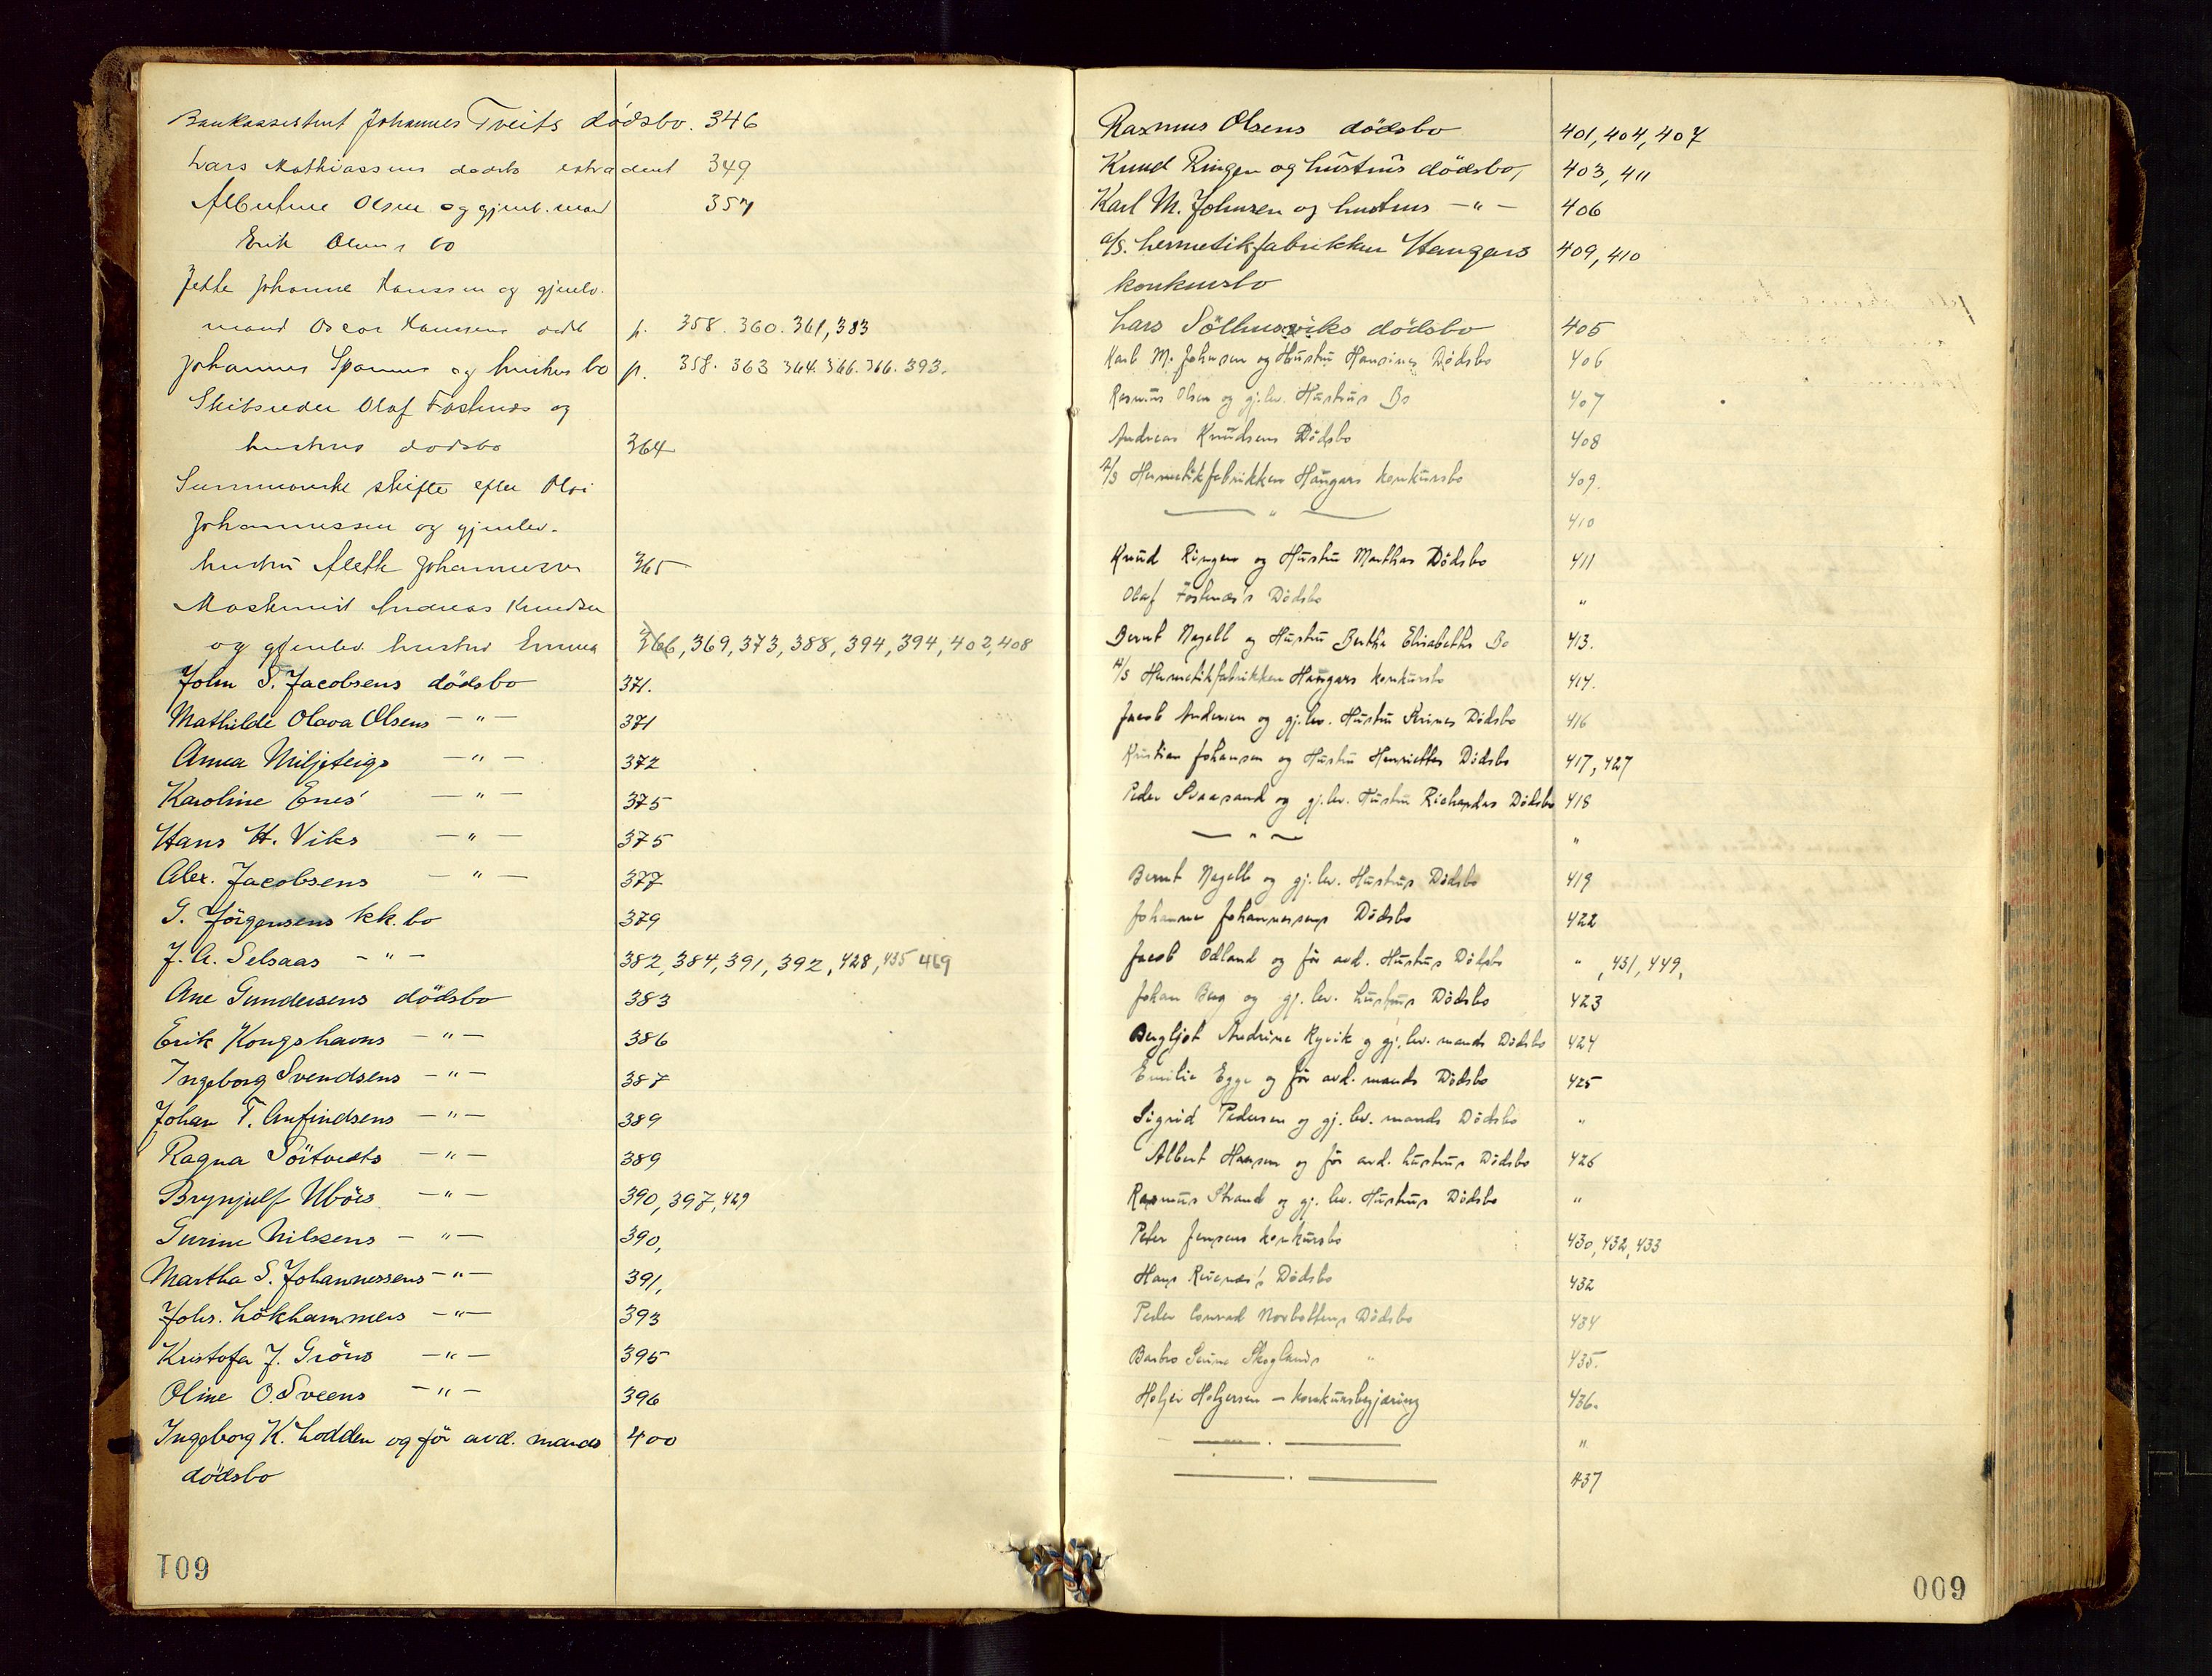 Bankassistent Johannes Tveits dödsbo. 346
Lars Mathiassens dødsbo extradert 349
Albertine Olsen og gjenl. mand 357
Erik Olsens bo
Jette Johanne Hanssen og gjenlev.
mand Oscar Hanssens p. 358. 360. 361, 383
Johannes Spannes og hustrus bo p. 358. 363 364. 366. 366. 393.
Skibsreder Olaf Fostenæs og
hustrus dødsbo 364
Summariske skifte efter Olai
Johannessen og gjenlev.
hustru Aleth Johannessen 365
Maskinist Andreas Knudsen
og gjenlev. hustru Emma 366, 369, 373, 388, 394, 394, 402, 408
John S. Jacobsens dödsbo 371.
Mathilde Olava Olsens — " — 371
Anna Miljeteigs — " — 372
Karoline Enes' — " — 375
Hans H. Viks — " — 375
Alex. Jacobsens — " — 377
G. Jörgensens kk. bo 379
J. A. Selsaas — " — 382, 384, 391, 392, 428, 435 469
Ane Gundersens dödsbo 383
Erik Kongshavns — " — 386
Ingeborg Svendsens — " — 387
Johan T. Anfindsens — " — 389
Ragna Sörtvedts — " — 389
Brynjulf Uböes — " — 390, 397, 429
Gurine Nilssens — " — 390,
Martha S. Johannessens — " — 391,
Johs. Lökhammers — " — 393
Kristofer J. Gröns — " — 395
Oline O. Sveens — " — 396
Ingeborg K. Lodden og för avd. mands 400
dödsbo
109
Rasmus Olsens dödsbo 401, 404, 407
Knud Ringen og hustrus dödsbo, 403, 411
Karl M. Johnsen og hustrus — " — 406
a/s. hermetikfabrikken Haugars 409, 410
konkursbo
Lars Sölhusviks dödsbo 405
Karl M. Johnsen og Hustru Hansines Dödsbo 406
Rasmus Olsen og gj.lev. Hustrus Bo 407
Andreas Knudsens Dödsbo 408
A/S Hermetikfabrikken Haugars konkursbo 409.
— " — 410
Knud Ringen og Hustru Marthas Dödsbo 411
Olaf Fostenæs's Dödsbo "
Bernt Nagell og Hustru Bertha Elisabeths Bo 413.
A/S Hermetikfabrikken Haugars konkursbo 414.
Jacob Andersen og gj.lev. Hustru Serines Dödsbo 416
Kristian Johansen og Hustru Henriettes Dödsbo 417, 427
Peder Svaasand og gj.lev. Hustru Richardas Dödsbo 418
— " — "
Bernt Nagell og gj.lev. Hustrus Dödsbo 419
Johanne Johannessens Dödsbo 422
Jacob Ödland og för avd. Hustrus Dödsbo " , 431, 449,
Johan Berg og gj.lev. hustrus Dödsbo 423
Bergljot Andrine Ryvik og gj.lev. mands Dödsbo 424
Emilie Egge og för avd. mands Dödsbo 425
Sigrid Pedersen og gj.lev. mands Dödsbo "
Albert Hansen og för avd. hustrus Dödsbo 426
Rasmus Strand og gj.lev. Hustrus Dödsbo "
Peder Jensens konkursbo 430, 432, 433
Hans Revenæs's Dödsbo 432
Peder Conrad Dödsbo 434
Barbro Skoglands " 435.
Holger Holgersen — konkursbegjæring 436.
— . — "
— . — 437
009